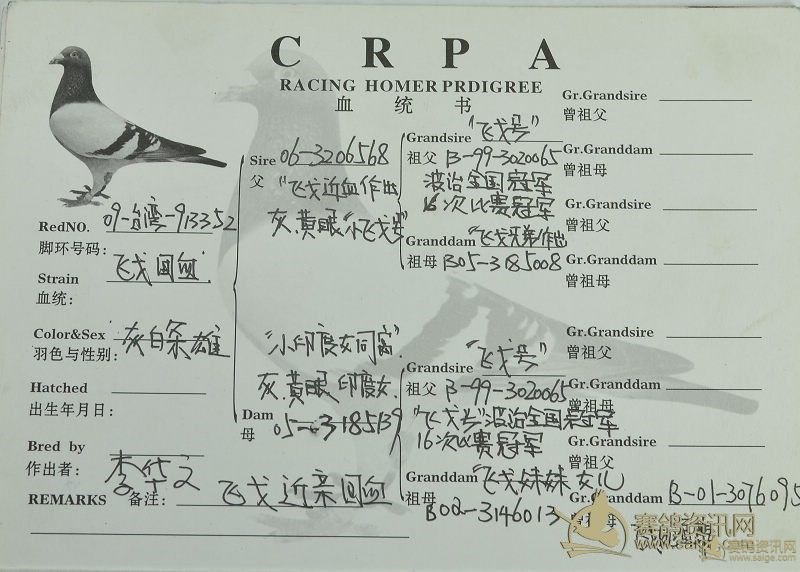 C R P A
RACING HOMER PRDIGREE
血 统 书
RedNO. 09-台湾-913352
脚环号码:
Strain 飞戈回血
血统:
Color&Sex
羽色与性别: 灰白条雄
Hatched
出生年月日:
Bred by
作出者: 李华文
REMARKS 备注: 飞戈近亲回血
Sire 06-3206568
父 "飞戈近血作出
灰.黄眼"小飞戈号"
"小印度女同窝"
灰.黄眼.印度女.
Dam
母 05-3185139
Grandsire "飞戈号"
祖父 B-99-3020065
波治全国冠军
16次比赛冠军
Granddam "飞戈兄弟作出
祖母 B05-3185008
Grandsire "飞戈号"
祖父 B-99-3020065
"飞戈号"波治全国冠军
16次比赛冠军
Granddam "飞戈妹妹女儿
祖母 B02-3146013
Gr.Grandsire
曾祖父
Gr.Granddam
曾祖母
Gr.Grandsire
曾祖父
Gr.Granddam
曾祖母
Gr.Grandsire
曾祖父
Gr.Granddam
曾祖母
Gr.Grandsire
曾祖父
Gr.Granddam B-01-3076095
曾祖母
赛鸽资讯网
www.saige.com
赛鸽资讯网